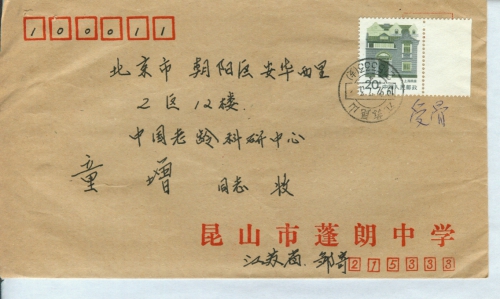 100011
北京市 朝阳区安华西里
2区12楼
中国老龄科研中心
童增 同志 收
昆山市蓬朗中学
江苏省. 邹哥
215333
20